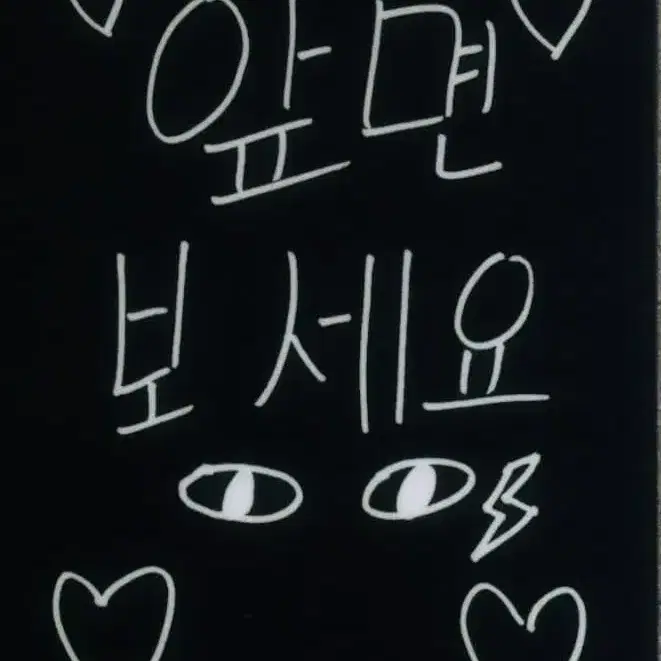 앞면
보세요